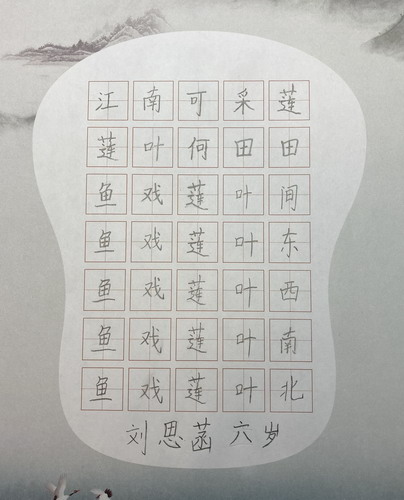 江南可采莲
莲叶何田田
鱼戏莲叶间
鱼戏莲叶东
鱼戏莲叶西
鱼戏莲叶南
鱼戏莲叶北
刘思菡 六岁